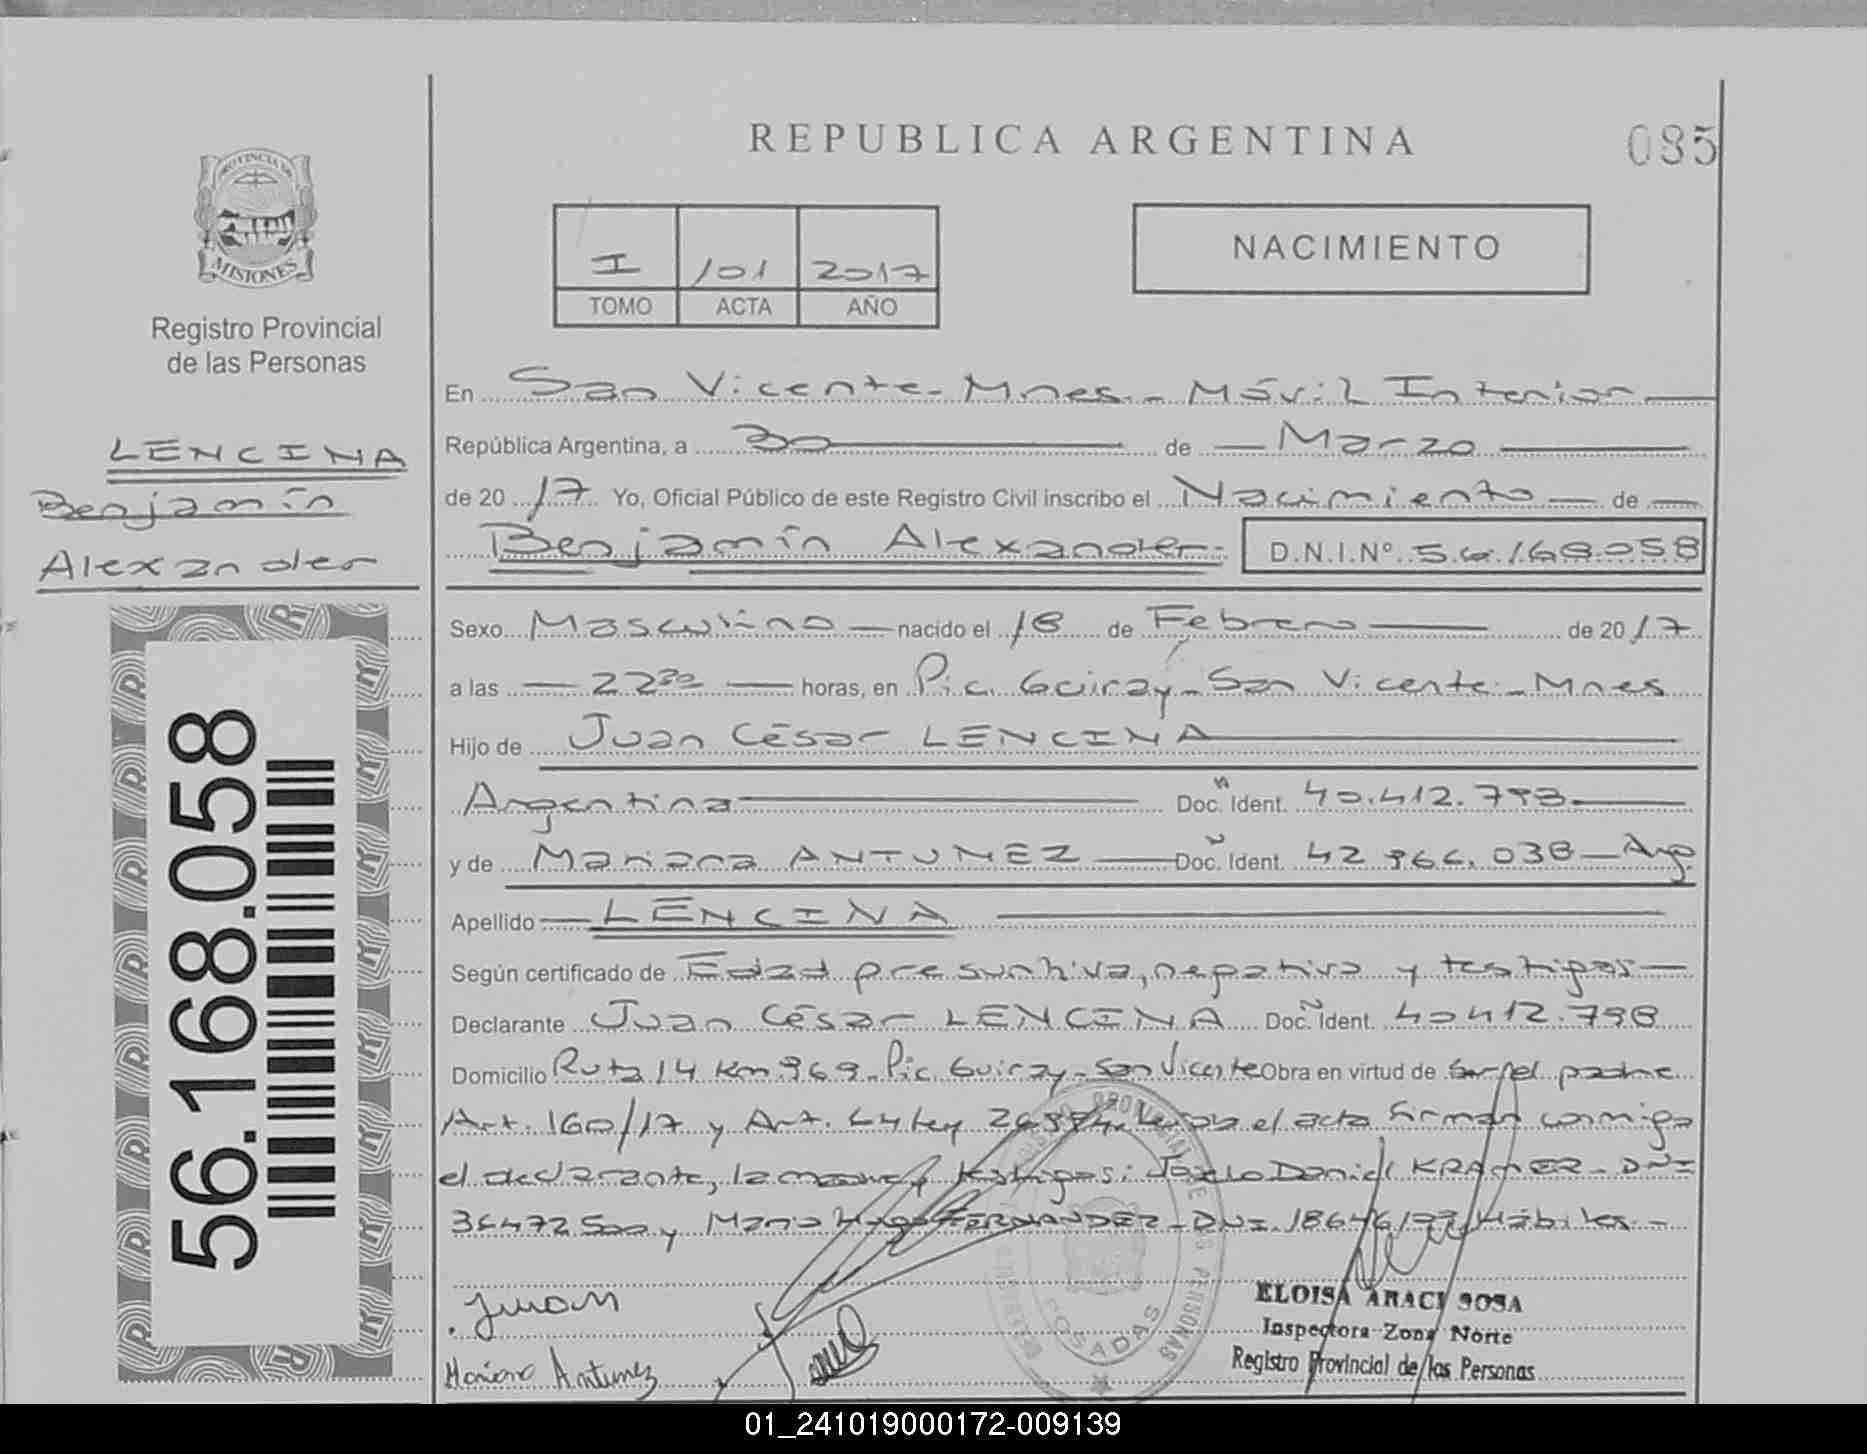 REPUBLICA ARGENTINA
085
PROVINCIA DE
MISIONES
Registro Provincial
de las Personas
I /101 2017
TOMO ACTA AÑO
NACIMIENTO
LENCINA
Benjamín
Alexander
56.168.058
En San Vicente - Mnes. - Móvil Interior
República Argentina, a 30 de Marzo
de 20 17 Yo, Oficial Público de este Registro Civil inscribo el Nacimiento de
Benjamín Alexander D.N.I.Nº 56.168.058
Sexo Masculino nacido el 18 de Febrero de 20 17
a las 22 30 horas, en Pic. Guiray - San Vicente - Mnes
Hijo de Juan César LENCINA
Argentina Doc. Ident. 40.412.798
y de Mariana ANTUNEZ Doc. Ident. 42.966.038 - Arg.
Apellido LENCINA
Según certificado de Edad presuntiva, negativa y testigos
Declarante Juan César LENCINA Doc. Ident. 40412.798
Domicilio Ruta 14 Km 969 - Pic. Guiray - San Vicente Obra en virtud de Ser el padre
Art. 160/17 y Art. 64 ley 26994. el acta firman conmigo
el declarante, la madre y testigos: Daniel KRAMER - DNI
y Mario Hugo FERNANDEZ - DNI Hábiles. -
Juan
Mariana Antunez
POSADAS
ELOISA ARACI SOSA
Inspectora Zona Norte
Registro Provincial de las Personas
01_241019000172-009139